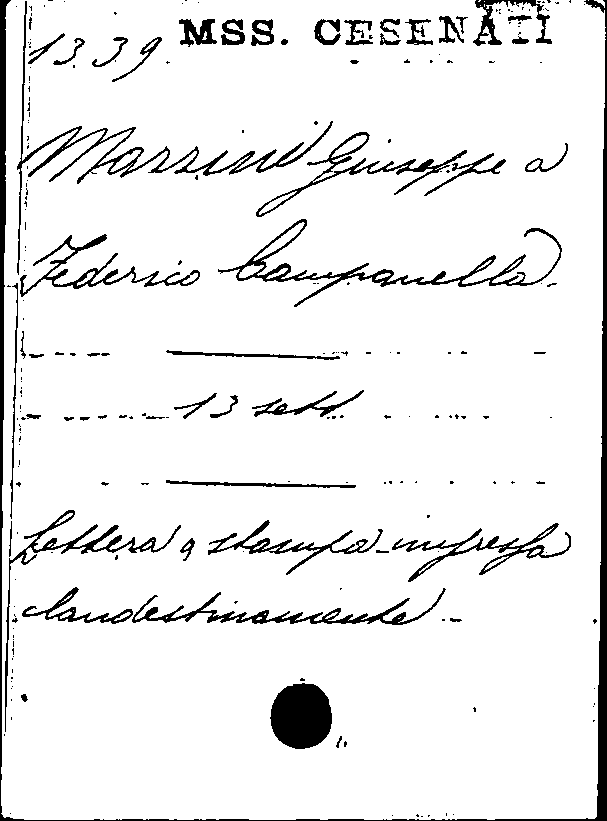 1339 MSS. CESENATI
Mazzini Giuseppe a
Federico Campanella.
13 sett
Lettera a stampa - impressa
clandestinamente -